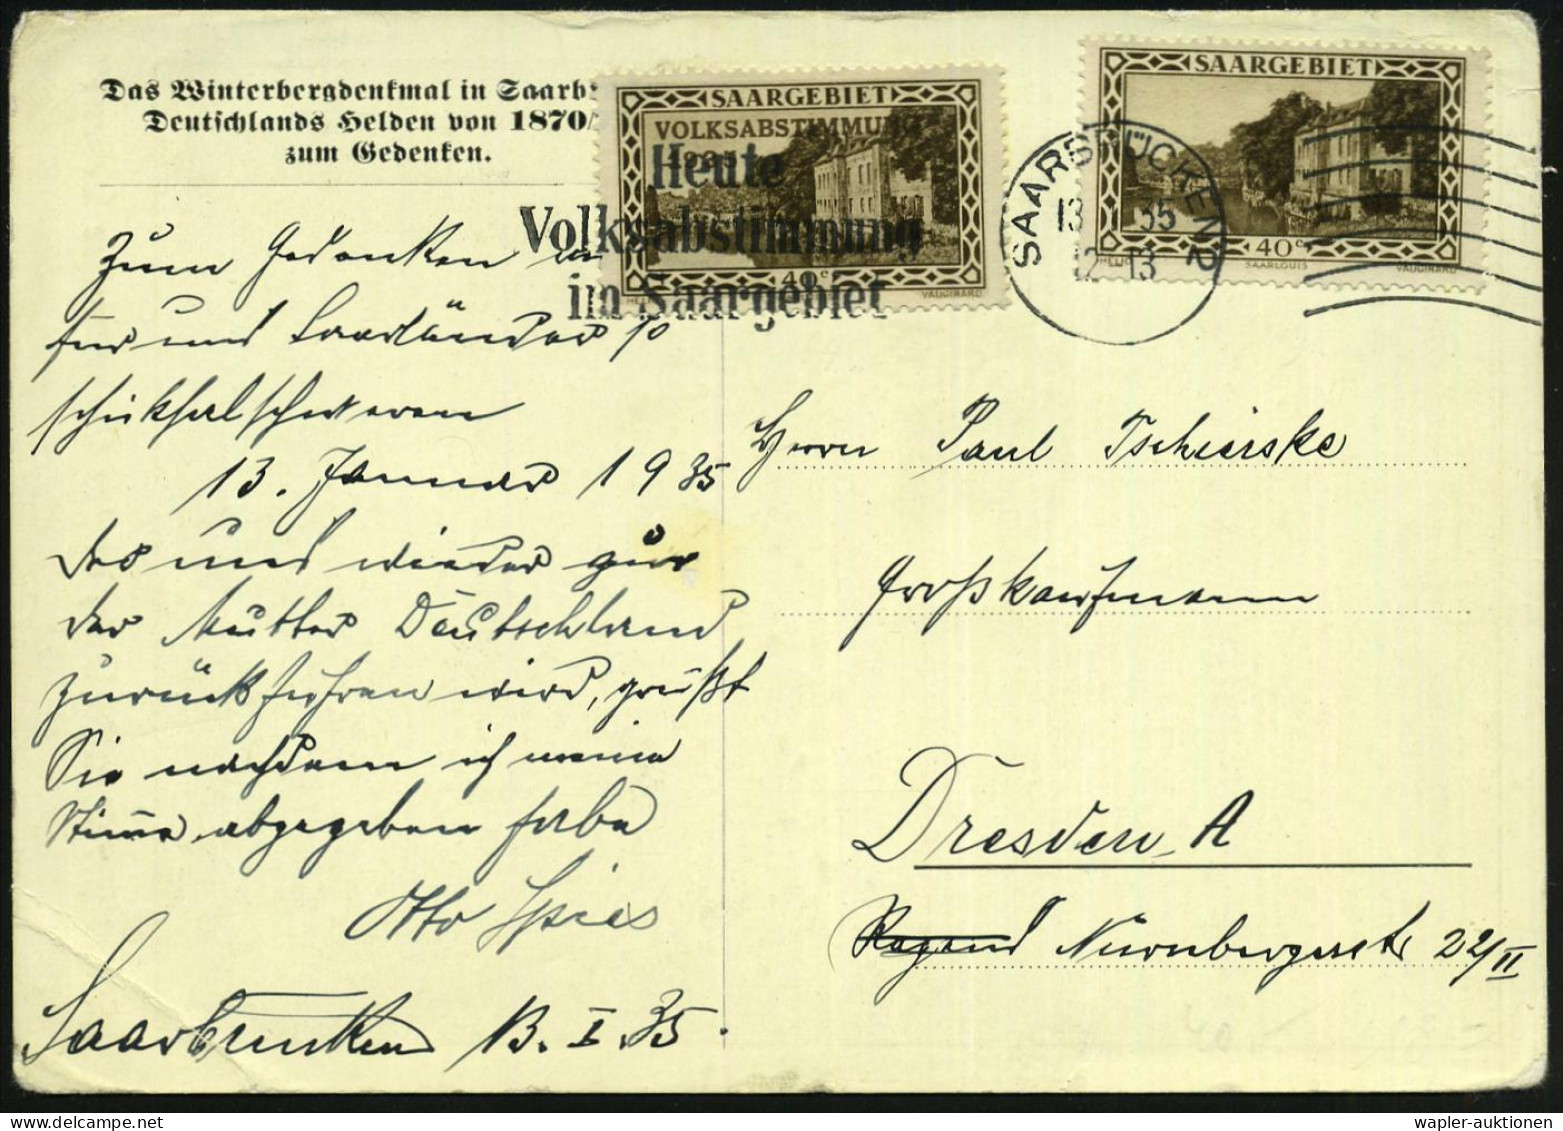 Das Winterbergdenkmal in Saarb
Deutschlands Helden von 1870/
zum Gedenken.
SAARGEBIET
VOLKSABSTIMMUNG
40 c
VAUGIRARD
Heute
Volksabstimmung
im Saargebiet
SAARBRÜCKEN 2
13 35
12-13
SAARGEBIET
40 c
SAARLOUIS
VAUGIRARD
Zum Gedenken
für uns Saarländer so
schicksalschweren
13. Januar 1935
der uns wieder zur
der Mutter Deutschland
zurückführen wird, grüßt
Sie nachdem ich meine
Stimme abgegeben habe
Otto Spies
Saarbrücken 13.I.35.
Herrn Paul Tschierske
Großkaufmann
Dresden A
Nürnbergerstr 22/II
wapler-auktionen